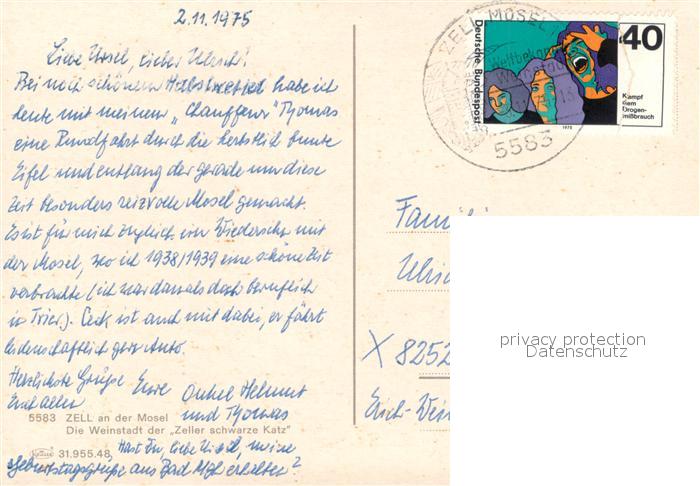 2.11.1975
Liebe Ursel, lieber Ulrich!
Bei noch schönem Herbstwetter habe ich
heute mit meinem „Chauffeur" Thomas
eine Rundfahrt durch die herbstlich bunte
Eifel und entlang der gerade um diese
Zeit besonders reizvolle Mosel gemacht.
Es ist für mich zugleich ein Wiedersehn mit
der Mosel, wo ich 1938/1939 eine schöne Zeit
verbrachte (ich war damals doch beruflich
in Trier). ist auch mit dabei, er fährt
leidenschaftlich gern Auto.
Herzlichste Grüße Euch allen
Onkel Helmut
und Thomas
5583 ZELL an der Mosel
Die Weinstadt der „Zeller schwarze Katz"
31.955.48
Hast Du, liebe Ursel, meine
Geburtstagsgrüße aus Bad erhalten?
ZELL MOSEL
5583
Deutsche Bundespost
1975
40
Kampf
dem
Drogen-
mißbrauch
Ulric
X 8252
privacy protection
Datenschutz